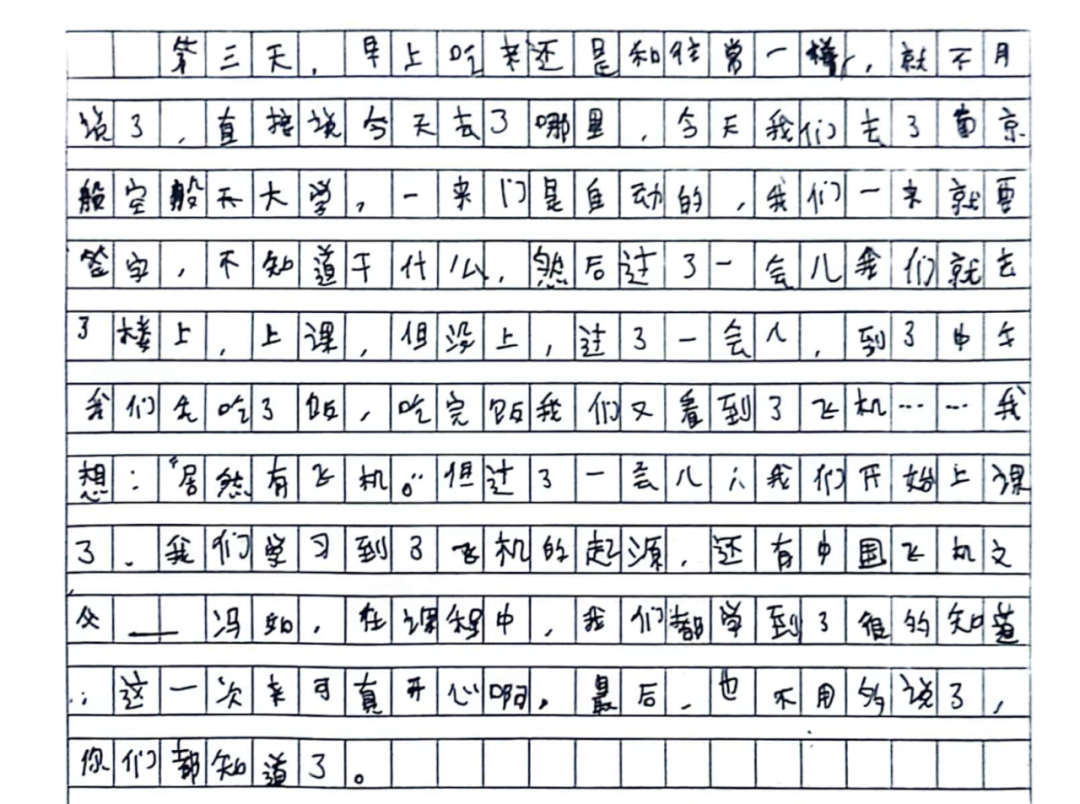 第三天，早上吃来还是和往常一样，就不月
说了，直接说今天去了哪里，今天我们去了南京
般空般天大学，一来门是自动的，我们一来就要
签字，不知道干什么，然后过了一会儿我们就去
了楼上，上课，但没上，过了一会儿，到了中午
我们先吃了饭，吃完饭我们又看到了飞机……我
想：“居然有飞机。”但过了一会儿；我们开始上课
了．我们学习到了飞机的起源，还有中国飞机之
父——冯如，在课程中，我们都学到了很多的知道
；这一次来可真开心啊，最后，也不用多说了，
你们都知道了。